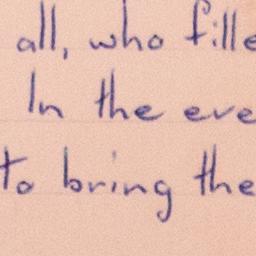 all, who fille
In the eve
to bring the